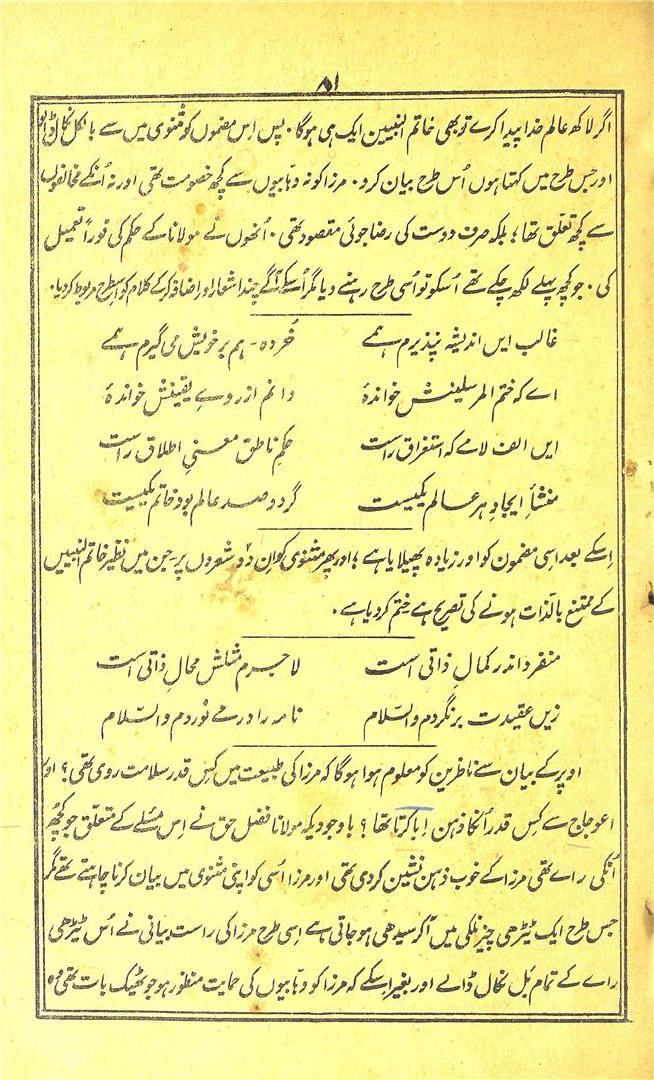 ۸۱
اگر لاکھ عالم خدا پیدا کرے تو بھی خاتم النبیین ایک ہی ہوگا۔ پس اِس مضمون کو مثنوی میں سے بالکل نکال ڈالو
اور جس طرح میں کہتا ہوں اُس طرح بیان کرو۔ مرزا کو نہ وہابیوں سے کچھ خصومت تھی اور نہ اُنکے مخالفوں
سے کچھ تعلّق تھا؛ بلکہ صرف دوست کی رضا جوئی مقصود تھی۔ اُنھوں نے مولانا کے حکم کی فوراً تعمیل
کی۔ جو کچھ پہلے لکھ چکے تھے اُسکو تو اُسی طرح رہنے دیا مگر اُسکے آگے چند اشعار اور اضافہ کرکے کلام کو اسطرح مربوط کردیا۔
غالب ایں اندیشہ نپذیرم ہمے خُردہ۔ ہم بر خویش می گیرم ہمے
اے کہ ختم المرسلینش خواندۂ دانم از روے یقینش خواندۂ
ایں الف لامے کہ استغراق راست حکمِ ناطق معنیِ اطلاق راست
منشاءِ ایجادِ ہر عالم یکیست گر دو صد عالم بود خاتم یکیست
اِسکے بعد اسی مضمون کو اور زیادہ پھیلایا ہے؛ اور پھر مثنوی کو اِن دو شعروں پر۔ جن میں نظیرِ خاتم النبیین
کے ممتنع بالذّات ہونے کی تصریح ہے ختم کردیا ہے۔
منفرد اندر کمالِ ذاتی است لاجرم مثلش محالِ ذاتی است
زیں عقیدت برنگردم والسّلام نامہ را در مے نوردم والسّلام
اوپر کے بیان سے ناظرین کو معلوم ہوا ہوگا کہ مرزا کی طبیعت میں کس قدر سلامت روی تھی؟ اور
اعوجاج سے کس قدر اُنکا ذہن اِبا کرتا تھا؟ باوجودیکہ مولانا فضل حق نے اِس مسئلے کے متعلق جو کچھ
اُنکی راے تھی مرزا کے خوب ذہن نشین کردی تھی اور مرزا اُسی کو اپنی مثنوی میں بیان کرنا چاہتے تھے مگر
جس طرح ایک ٹیڑھی چیز نلکی میں آکر سیدھی ہوجاتی ہے اِسی طرح مرزا کی راست بیانی نے اُس ٹیڑھی
راے کے تمام بَل نکال ڈالے اور بغیر اِسکے کہ مرزا کو وہابیوں کی حمایت منظور ہو جو ٹھیک بات تھی وہ